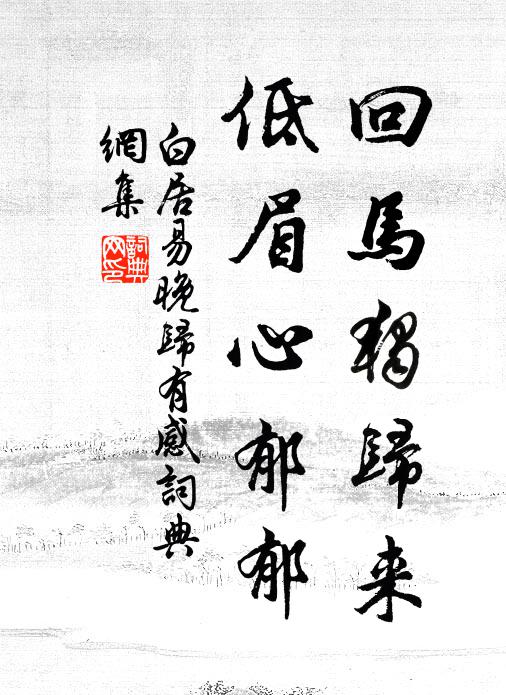 回馬獨歸来
低眉心郁郁
白居易晚歸有感詞典
網集
詞典
网印